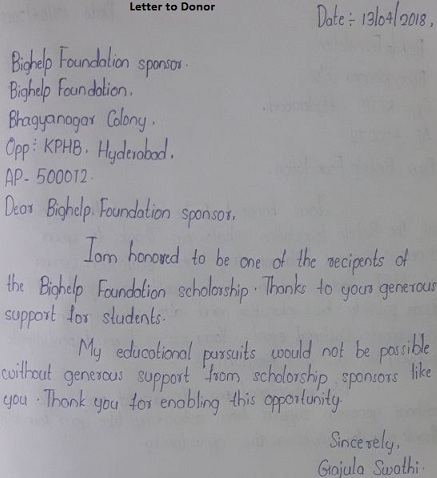 Letter to Donor
Date:- 13/04/2018.
Bighelp Foundation sponsor.
Bighelp Foundation.
Bhagyanagar Colony.
Opp: KPHB. Hyderabad.
AP- 500012.
Dear Bighelp Foundation sponsor,
Iam honored to be one of the recipents of
the Bighelp Foundation scholorship. Thanks to your generous
support for students.
My educational pursuits would not be possible
without generous support from scholorship sponsors like
you. Thank you for enabling this opportunity
Sincerely,
Gajula Swathi.